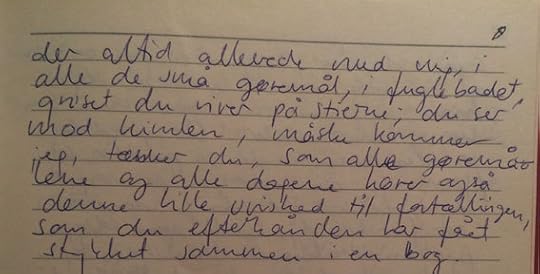 8
der altid allerede med mig, i
alle de små gøremål, i fuglebadet,
gruset du river på stierne; du ser
mod himlen, måske kommer
jeg, tænker du, som alle gøremå
lene og alle dagene hører også
denne lille vished til fortællingen,
som du efterhånden har fået
stykket sammen i en bog.